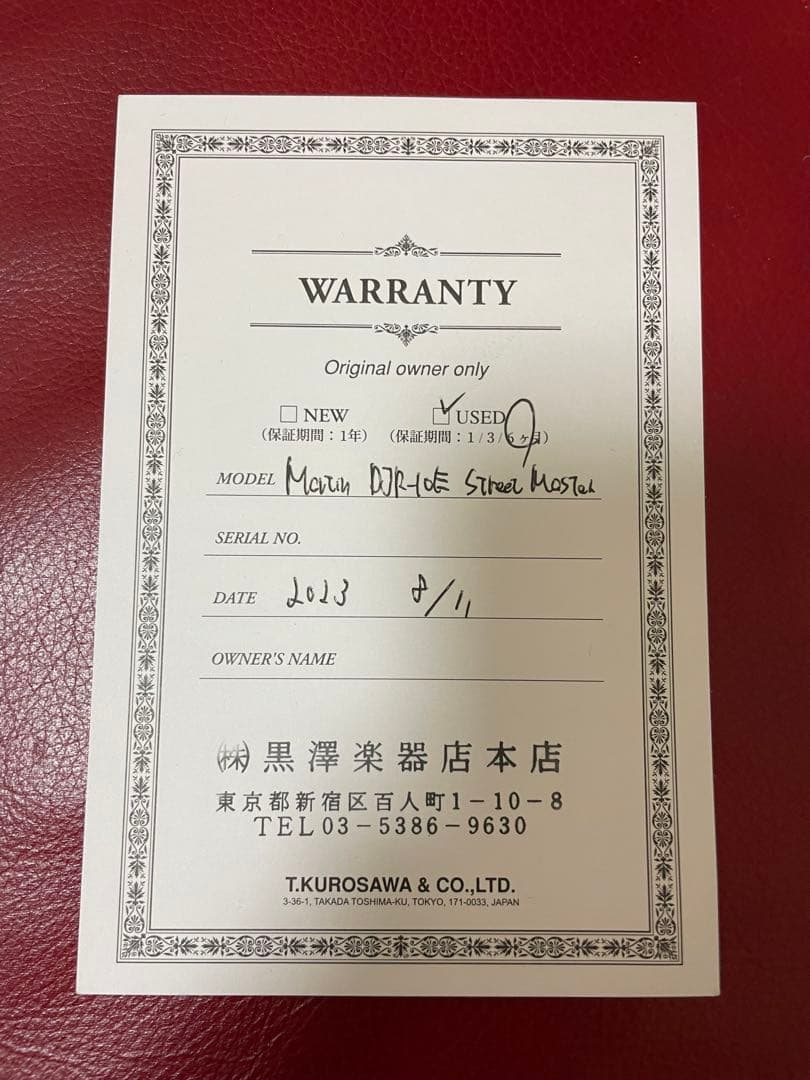 WARRANTY
Original owner only
☐ NEW ☑ USED
(保証期間：1年) (保証期間：1/3/6ヶ月)
MODEL Martin DJR-10E Street Master
SERIAL NO.
DATE 2023 8/11
OWNER'S NAME
㈱黒澤楽器店本店
東京都新宿区百人町1-10-8
TEL03-5386-9630
T.KUROSAWA & CO.,LTD.
3-36-1, TAKADA TOSHIMA-KU, TOKYO, 171-0033, JAPAN